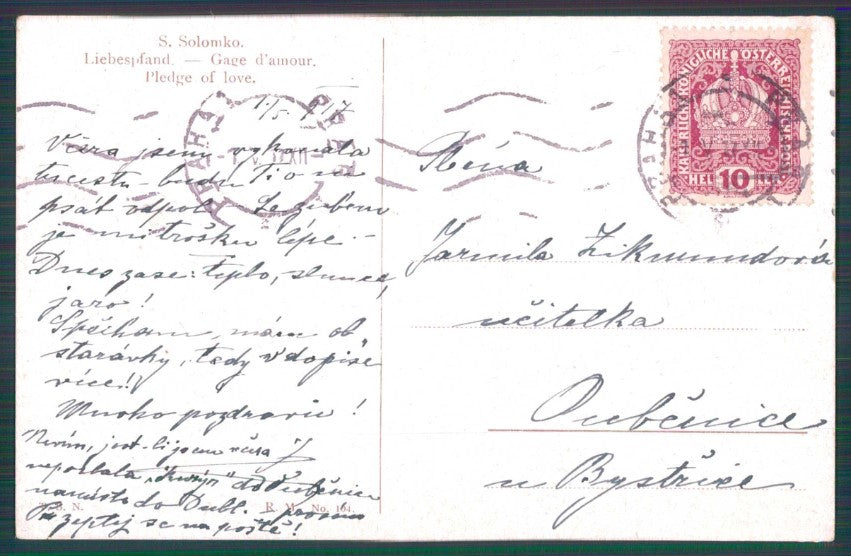 S. Solomko.
Liebespfand. — Gage d'amour.
Pledge of love.
1/5 1917
Včera jsem vykonala
cestu - budu Ti o ní
psát odpol. Se zubem
je mi trošku lépe. -
Dnes zase: teplo, slunce,
jaro!
Spěchám, mám ob
starávky, tedy v dopise
více!
Mnoho pozdravů!
Nevím, jest-li jsem včera
neposlala do Ouběnice
namísto do Dubl.
zeptej se na poště!
B. N. R. M. No. 164.
KAISERLICHE KÖNIGLICHE ÖSTERREICHISCHE
HELLER 10
PRAHA
Slečna
Jarmila Zikmundová
učitelka
Ouběnice
u Bystřice